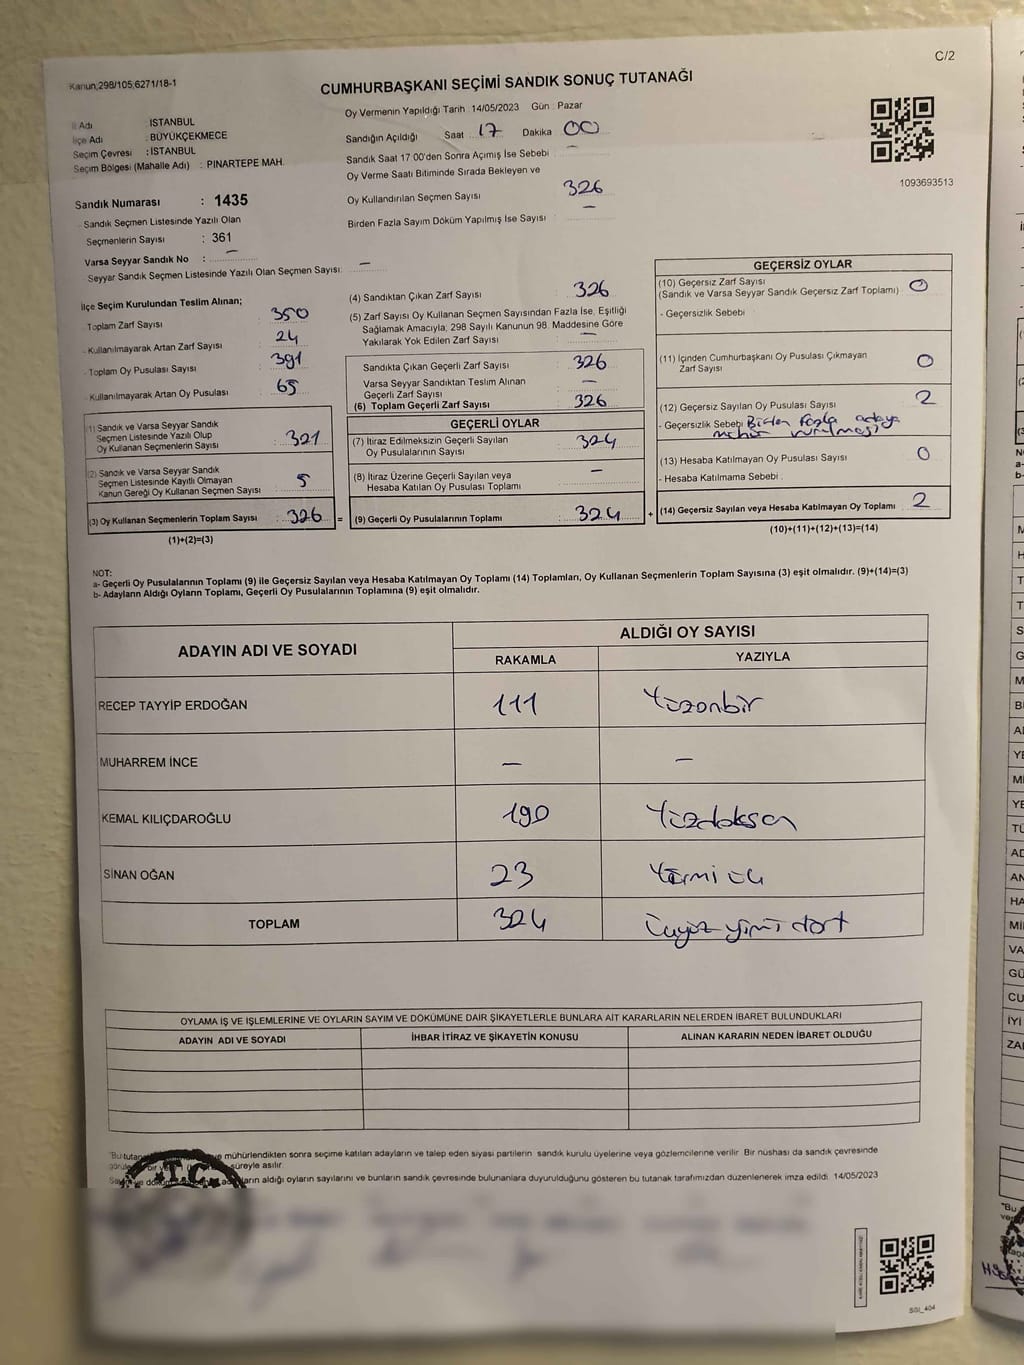 C/2
Kanun;298/105;6271/18-1
CUMHURBAŞKANI SEÇİMİ SANDIK SONUÇ TUTANAĞI
İl Adı : İSTANBUL
İlçe Adı : BÜYÜKÇEKMECE
Seçim Çevresi : İSTANBUL
Seçim Bölgesi (Mahalle Adı) : PINARTEPE MAH.
Sandık Numarası : 1435
Sandık Seçmen Listesinde Yazılı Olan
Seçmenlerin Sayısı : 361
Varsa Seyyar Sandık No : —
Seyyar Sandık Seçmen Listesinde Yazılı Olan Seçmen Sayısı: —
Oy Vermenin Yapıldığı Tarih : 14/05/2023 Gün : Pazar
Sandığın Açıldığı Saat 17 Dakika 00
Sandık Saat 17:00'den Sonra Açımış İse Sebebi : —
Oy Verme Saati Bitiminde Sırada Bekleyen ve
Oy Kullandırılan Seçmen Sayısı : 326
Birden Fazla Sayım Döküm Yapılmış İse Sayısı : —
1093693513
İlçe Seçim Kurulundan Teslim Alınan;
- Toplam Zarf Sayısı : 350
- Kullanılmayarak Artan Zarf Sayısı : 24
- Toplam Oy Pusulası Sayısı : 391
- Kullanılmayarak Artan Oy Pusulası : 65
(1) Sandık ve Varsa Seyyar Sandık
Seçmen Listesinde Yazılı Olup
Oy Kullanan Seçmenlerin Sayısı : 321
(2) Sandık ve Varsa Seyyar Sandık
Seçmen Listesinde Kayıtlı Olmayan
Kanun Gereği Oy Kullanan Seçmen Sayısı : 5
(3) Oy Kullanan Seçmenlerin Toplam Sayısı : 326
(1)+(2)=(3)
(4) Sandıktan Çıkan Zarf Sayısı : 326
(5) Zarf Sayısı Oy Kullanan Seçmen Sayısından Fazla İse, Eşitliği
Sağlamak Amacıyla; 298 Sayılı Kanunun 98. Maddesine Göre
Yakılarak Yok Edilen Zarf Sayısı : —
Sandıkta Çıkan Geçerli Zarf Sayısı : 326
Varsa Seyyar Sandıktan Teslim Alınan
Geçerli Zarf Sayısı : —
(6) Toplam Geçerli Zarf Sayısı : 326
GEÇERLİ OYLAR
(7) İtiraz Edilmeksizin Geçerli Sayılan
Oy Pusulalarının Sayısı : 324
(8) İtiraz Üzerine Geçerli Sayılan ve
Hesaba Katılan Oy Pusulası Toplamı : —
= (9) Geçerli Oy Pusulalarının Toplamı : 324
GEÇERSİZ OYLAR
(10) Geçersiz Zarf Sayısı
(Sandık ve Varsa Seyyar Sandık Geçersiz Zarf Toplamı) : 0
- Geçersizlik Sebebi
(11) İçinden Cumhurbaşkanı Oy Pusulası Çıkmayan
Zarf Sayısı : 0
(12) Geçersiz Sayılan Oy Pusulası Sayısı : 2
- Geçersizlik Sebebi Birden fazla adaya
mühür vurulması
(13) Hesaba Katılmayan Oy Pusulası Sayısı : 0
- Hesaba Katılmama Sebebi :
+ (14) Geçersiz Sayılan veya Hesaba Katılmayan Oy Toplamı : 2
(10)+(11)+(12)+(13)=(14)
NOT:
a- Geçerli Oy Pusulalarının Toplamı (9) ile Geçersiz Sayılan veya Hesaba Katılmayan Oy Toplamı (14) Toplamları, Oy Kullanan Seçmenlerin Toplam Sayısına (3) eşit olmalıdır. (9)+(14)=(3)
b- Adayların Aldığı Oyların Toplamı, Geçerli Oy Pusulalarının Toplamına (9) eşit olmalıdır.
ADAYIN ADI VE SOYADI
ALDIĞI OY SAYISI
RAKAMLA YAZIYLA
RECEP TAYYİP ERDOĞAN 111 Yüzonbir
MUHARREM İNCE — —
KEMAL KILIÇDAROĞLU 190 Yüzdoksan
SİNAN OĞAN 23 Yirmi üç
TOPLAM 324 Üçyüz yirmi dört
OYLAMA İŞ VE İŞLEMLERİNE VE OYLARIN SAYIM VE DÖKÜMÜNE DAİR ŞİKAYETLERLE BUNLARA AİT KARARLARIN NELERDEN İBARET BULUNDUKLARI
ADAYIN ADI VE SOYADI İHBAR İTİRAZ VE ŞİKAYETİN KONUSU ALINAN KARARIN NEDEN İBARET OLDUĞU
mühürlendikten sonra seçime katılan adayların ve talep eden siyasi partilerin sandık kurulu üyelerine veya gözlemcilerine verilir. Bir nüshası da sandık çevresinde
süreyle asılır.
aldığı oyların sayılarını ve bunların sandık çevresinde bulunanlara duyurulduğunu gösteren bu tutanak tarafımızdan düzenlenerek imza edildi. 14/05/2023
T.C.
SGI_404